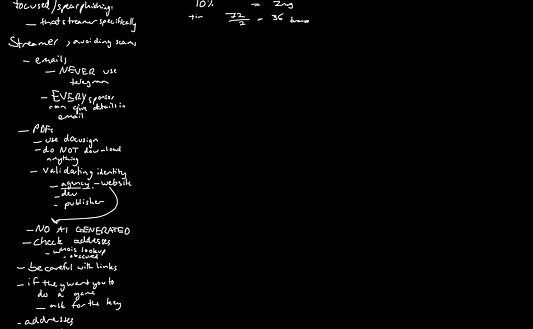 focused/spearphishing
- that streamer specifically
Streamer, avoiding scams
- emails
- NEVER use
telegram
- EVERY sponsor
can give details in
email
- PDFs
- use docusign
- do NOT download
anything
- validating identity
- agency - website
- dev
- publisher
- NO AI GENERATED
- check addresses
- whois lookup
- obscured
- be careful with links
- if they want you to
do a game
- ask for the key
- addresses
10% = 2mg
72/2 = 36